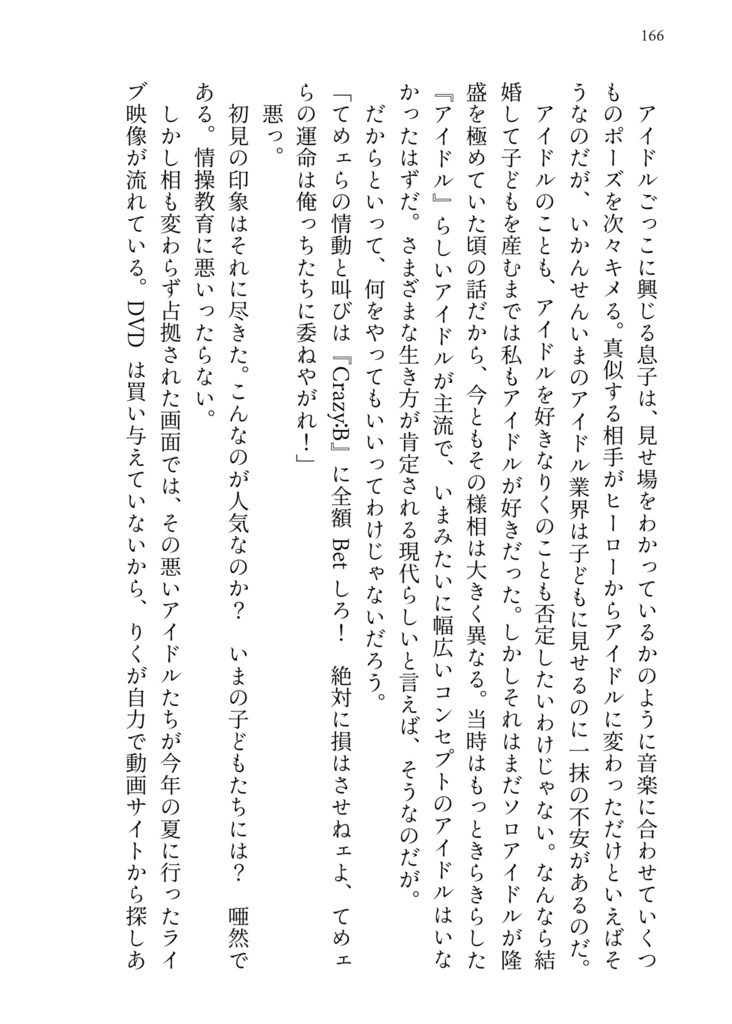 166
　アイドルごっこに興じる息子は、見せ場をわかっているかのように音楽に合わせていくつ
ものポーズを次々キメる。真似する相手がヒーローからアイドルに変わっただけといえばそ
うなのだが、いかんせんいまのアイドル業界は子どもに見せるのに一抹の不安があるのだ。
　アイドルのことも、アイドルを好きなりくのことも否定したいわけじゃない。なんなら結
婚して子どもを産むまでは私もアイドルが好きだった。しかしそれはまだソロアイドルが隆
盛を極めていた頃の話だから、今ともその様相は大きく異なる。当時はもっときらきらした
『アイドル』らしいアイドルが主流で、いまみたいに幅広いコンセプトのアイドルはいな
かったはずだ。さまざまな生き方が肯定される現代らしいと言えば、そうなのだが。
　だからといって、何をやってもいいってわけじゃないだろう。
「てめェらの情動と叫びは『Crazy:B』に全額 Bet しろ！　絶対に損はさせねェよ、てめェ
らの運命は俺っちたちに委ねやがれ！」
　悪っ。
　初見の印象はそれに尽きた。こんなのが人気なのか？　いまの子どもたちには？　唖然で
ある。情操教育に悪いったらない。
　しかし相も変わらず占拠された画面では、その悪いアイドルたちが今年の夏に行ったライ
ブ映像が流れている。DVD は買い与えていないから、りくが自力で動画サイトから探しあ